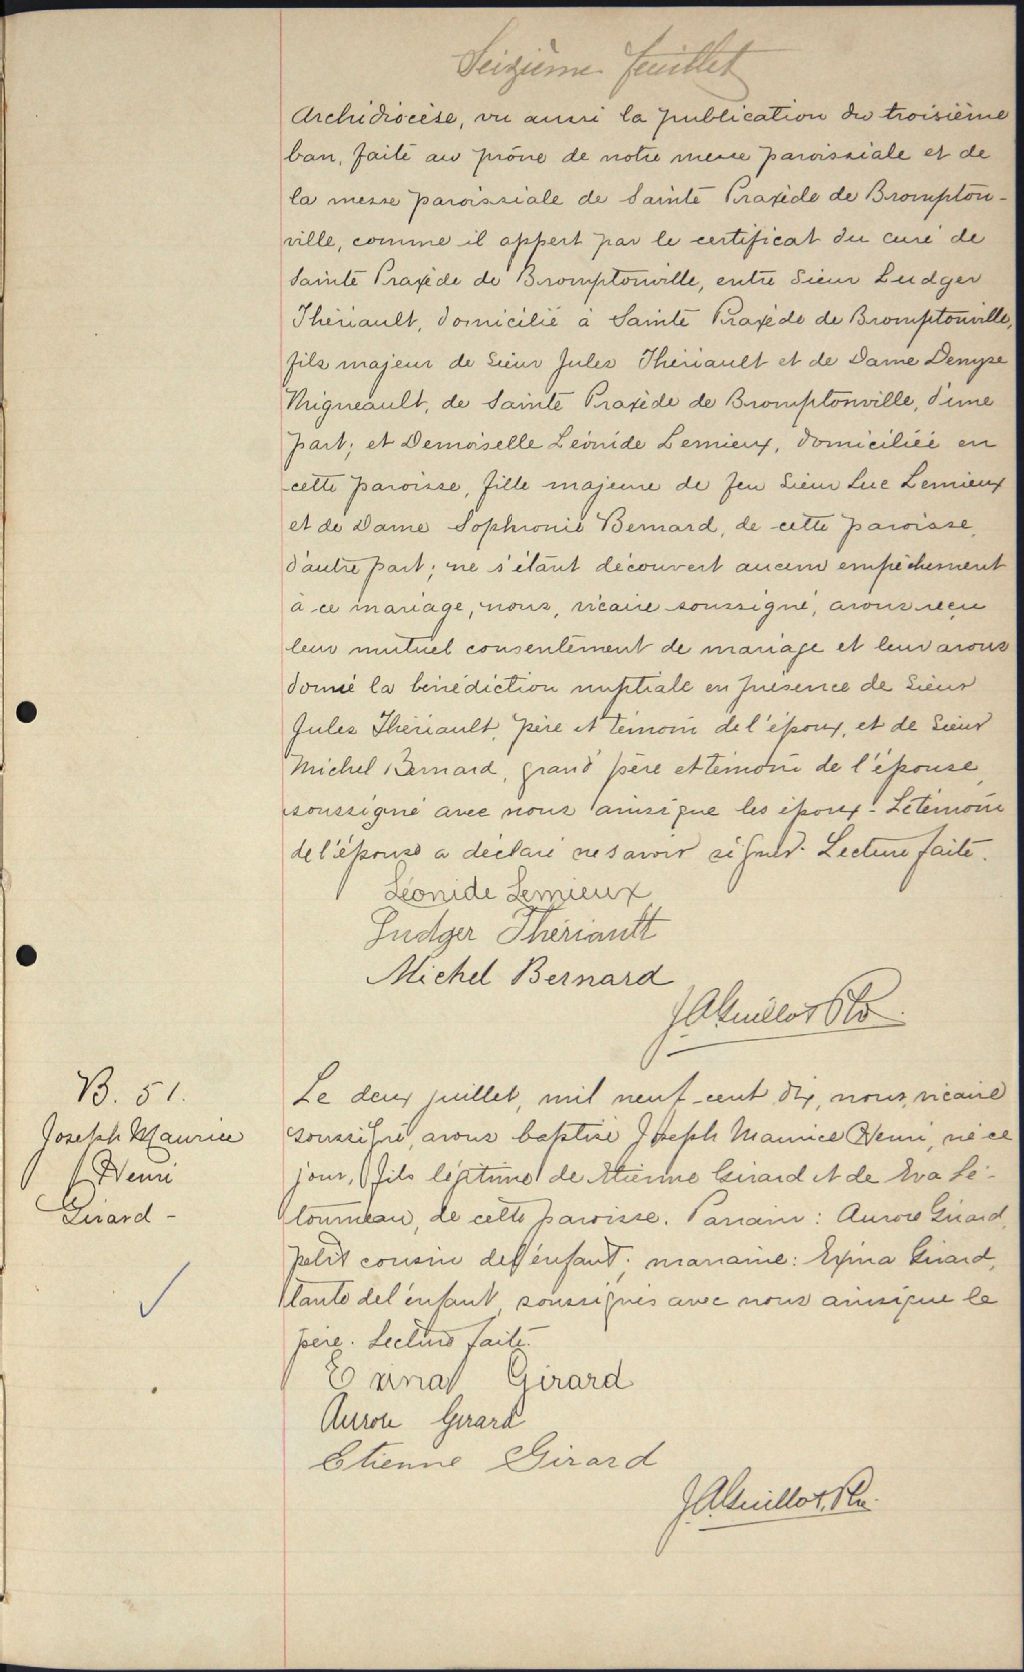 Seizième feuillet
Archidiocèse, vu aussi la publication du troisième
ban, faite au prône de notre messe paroissiale et de
la messe paroissiale de Sainte Praxède de Brompton-
ville, comme il appert par le certificat du curé de
Sainte Praxède de Bromptonville, entre Sieur Ludger
Thériault, domicilié à Sainte Praxède de Bromptonville,
fils majeur de Sieur Jules Thériault et de Dame Denyse
Migneault, de Sainte Praxède de Bromptonville, d'une
part; et Demoiselle Léonide Lemieux, domiciliée en
cette paroisse, fille majeure de feu Sieur Luc Lemieux
et de Dame Sophronie Bernard, de cette paroisse,
d'autre part; ne s'étant découvert aucun empêchement
à ce mariage, nous, vicaire soussigné, avons reçu
leur mutuel consentement de mariage et leur avons
donné la bénédiction nuptiale en présence de Sieur
Jules Thériault, père et témoin de l'époux, et de Sieur
Michel Bernard, grand père et témoin de l'épouse,
soussigné avec nous ainsi que les époux - Le témoin
de l'épouse a déclaré ne savoir signer. Lecture faite.
Léonide Lemieux
Ludger Thériault
Michel Bernard
J.A. Guillot Ptr.
B. 51.
Joseph Maurice
Henri
Girard -
Le deux juillet, mil neuf-cent dix, nous, vicaire
soussigné, avons baptisé Joseph Maurice Henri, né ce
jour, fils légitime de Etienne Girard et de Eva Lé-
tourneau, de cette paroisse. Parrain: Aurore Girard,
petit cousin de l'enfant; marraine: Exina Girard,
tante de l'enfant, soussignés avec nous ainsi que le
père. Lecture faite.
Exina Girard
Aurore Girard
Etienne Girard
J.A. Guillot, Ptr.